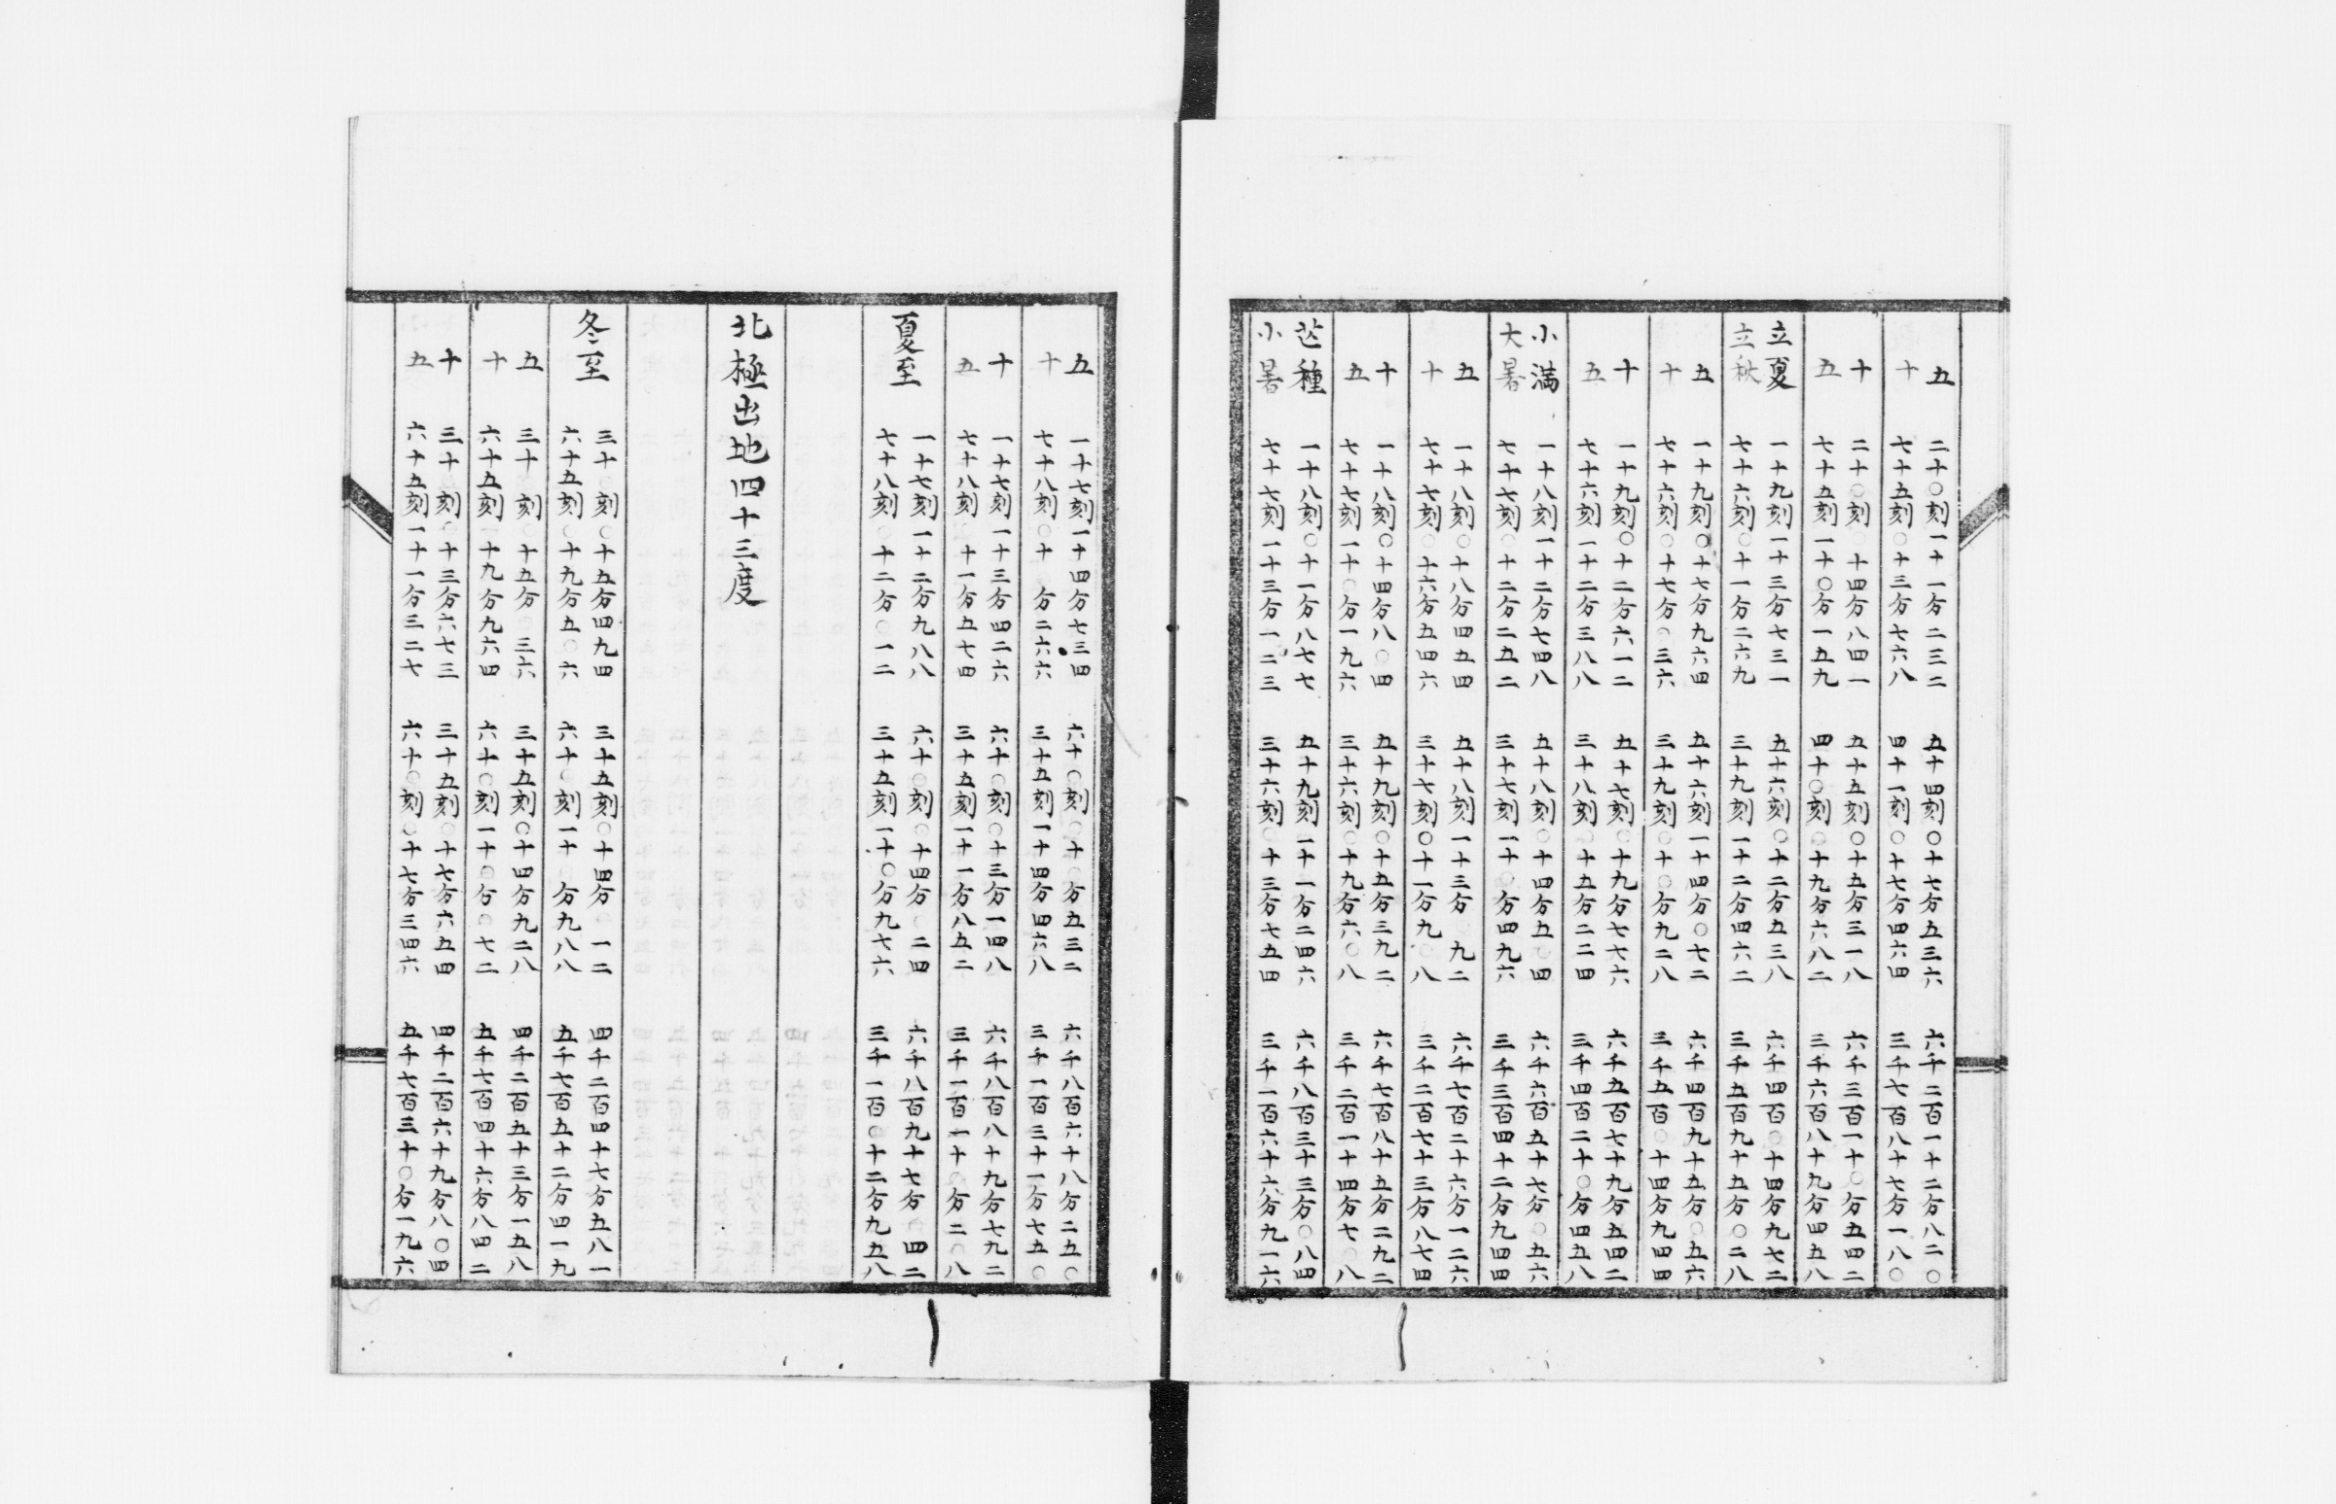 五 二十〇刻一十一分二三二 五十四刻〇十七分五三六 六千二百一十二分八二〇
十 七十五刻〇十三分七六八 四十一刻〇十七分四六四 三千七百八十七分一八〇
十 二十〇刻〇十四分八四一 五十五刻〇十五分三一八 六千三百一十〇分五四二
五 七十五刻一十〇分一五九 四十〇刻〇十九分六八二 三千六百八十九分四五八
立夏 一十九刻一十三分七三一 五十六刻〇十二分五三八 六千四百〇十四分九七二
立秋 七十六刻〇十一分二六九 三十九刻一十二分四六二 三千五百九十五分〇二八
五 一十九刻〇十七分九六四 五十六刻一十四分〇七二 六千四百九十五分〇五六
十 七十六刻〇十七分〇三六 三十九刻〇十〇分九二八 三千五百〇十四分九四四
十 一十九刻〇十二分六一二 五十七刻〇十九分七七六 六千五百七十九分五四二
五 七十六刻一十二分三八八 三十八刻〇十五分二二四 三千四百二十〇分四五八
小满 一十八刻一十二分七四八 五十八刻〇十四分五〇四 六千六百五十七分〇五六
大暑 七十七刻〇十二分二五二 三十七刻一十〇分四九六 三千三百四十二分九四四
五 一十八刻〇十八分四五四 五十八刻一十三分〇九二 六千七百二十六分一二六
十 七十七刻〇十六分五四六 三十七刻〇十一分九〇八 三千二百七十三分八七四
十 一十八刻〇十四分八〇四 五十九刻〇十五分三九二 六千七百八十五分二九二
五 七十七刻一十〇分一九六 三十六刻〇十九分六〇八 三千二百一十四分七〇八
芒種 一十八刻〇十一分八七七 五十九刻一十一分二四六 六千八百三十三分〇八四
小暑 七十七刻一十三分一二三 三十六刻〇十三分七五四 三千一百六十六分九一六
五 一十七刻一十四分七三四 六十〇刻〇十〇分五三二 六千八百六十八分二五〇
十 七十八刻〇十 分二六六 三十五刻一十四分四六八 三千一百三十一分七五〇
十 一十七刻一十三分四二六 六十〇刻〇十三分一四八 六千八百八十九分七九二
五 七十八刻 十一分五七四 三十五刻一十一分八五二 三千一百一十〇分二〇八
夏至 一十七刻一十二分九八八 六十〇刻〇十四分〇二四 六千八百九十七分〇四二
七十八刻〇十二分〇一二 三十五刻一十〇分九七六 三千一百〇十二分九五八
北極出地四十三度
冬至 三十〇刻〇十五分四九四 三十五刻〇十四分〇一二 四千二百四十七分五八一
六十五刻〇十九分五〇六 六十〇刻一十 分九八八 五千七百五十二分四一九
五 三十 刻〇十五分〇三六 三十五刻〇十四分九二八 四千二百五十三分一五八
十 六十五刻一十九分九六四 六十〇刻一十〇分〇七二 五千七百四十六分八四二
十 三十 刻〇十三分六七三 三十五刻〇十七分六五四 四千二百六十九分八〇四
五 六十五刻一十一分三二七 六十〇刻〇十七分三四六 五千七百三十〇分一九六